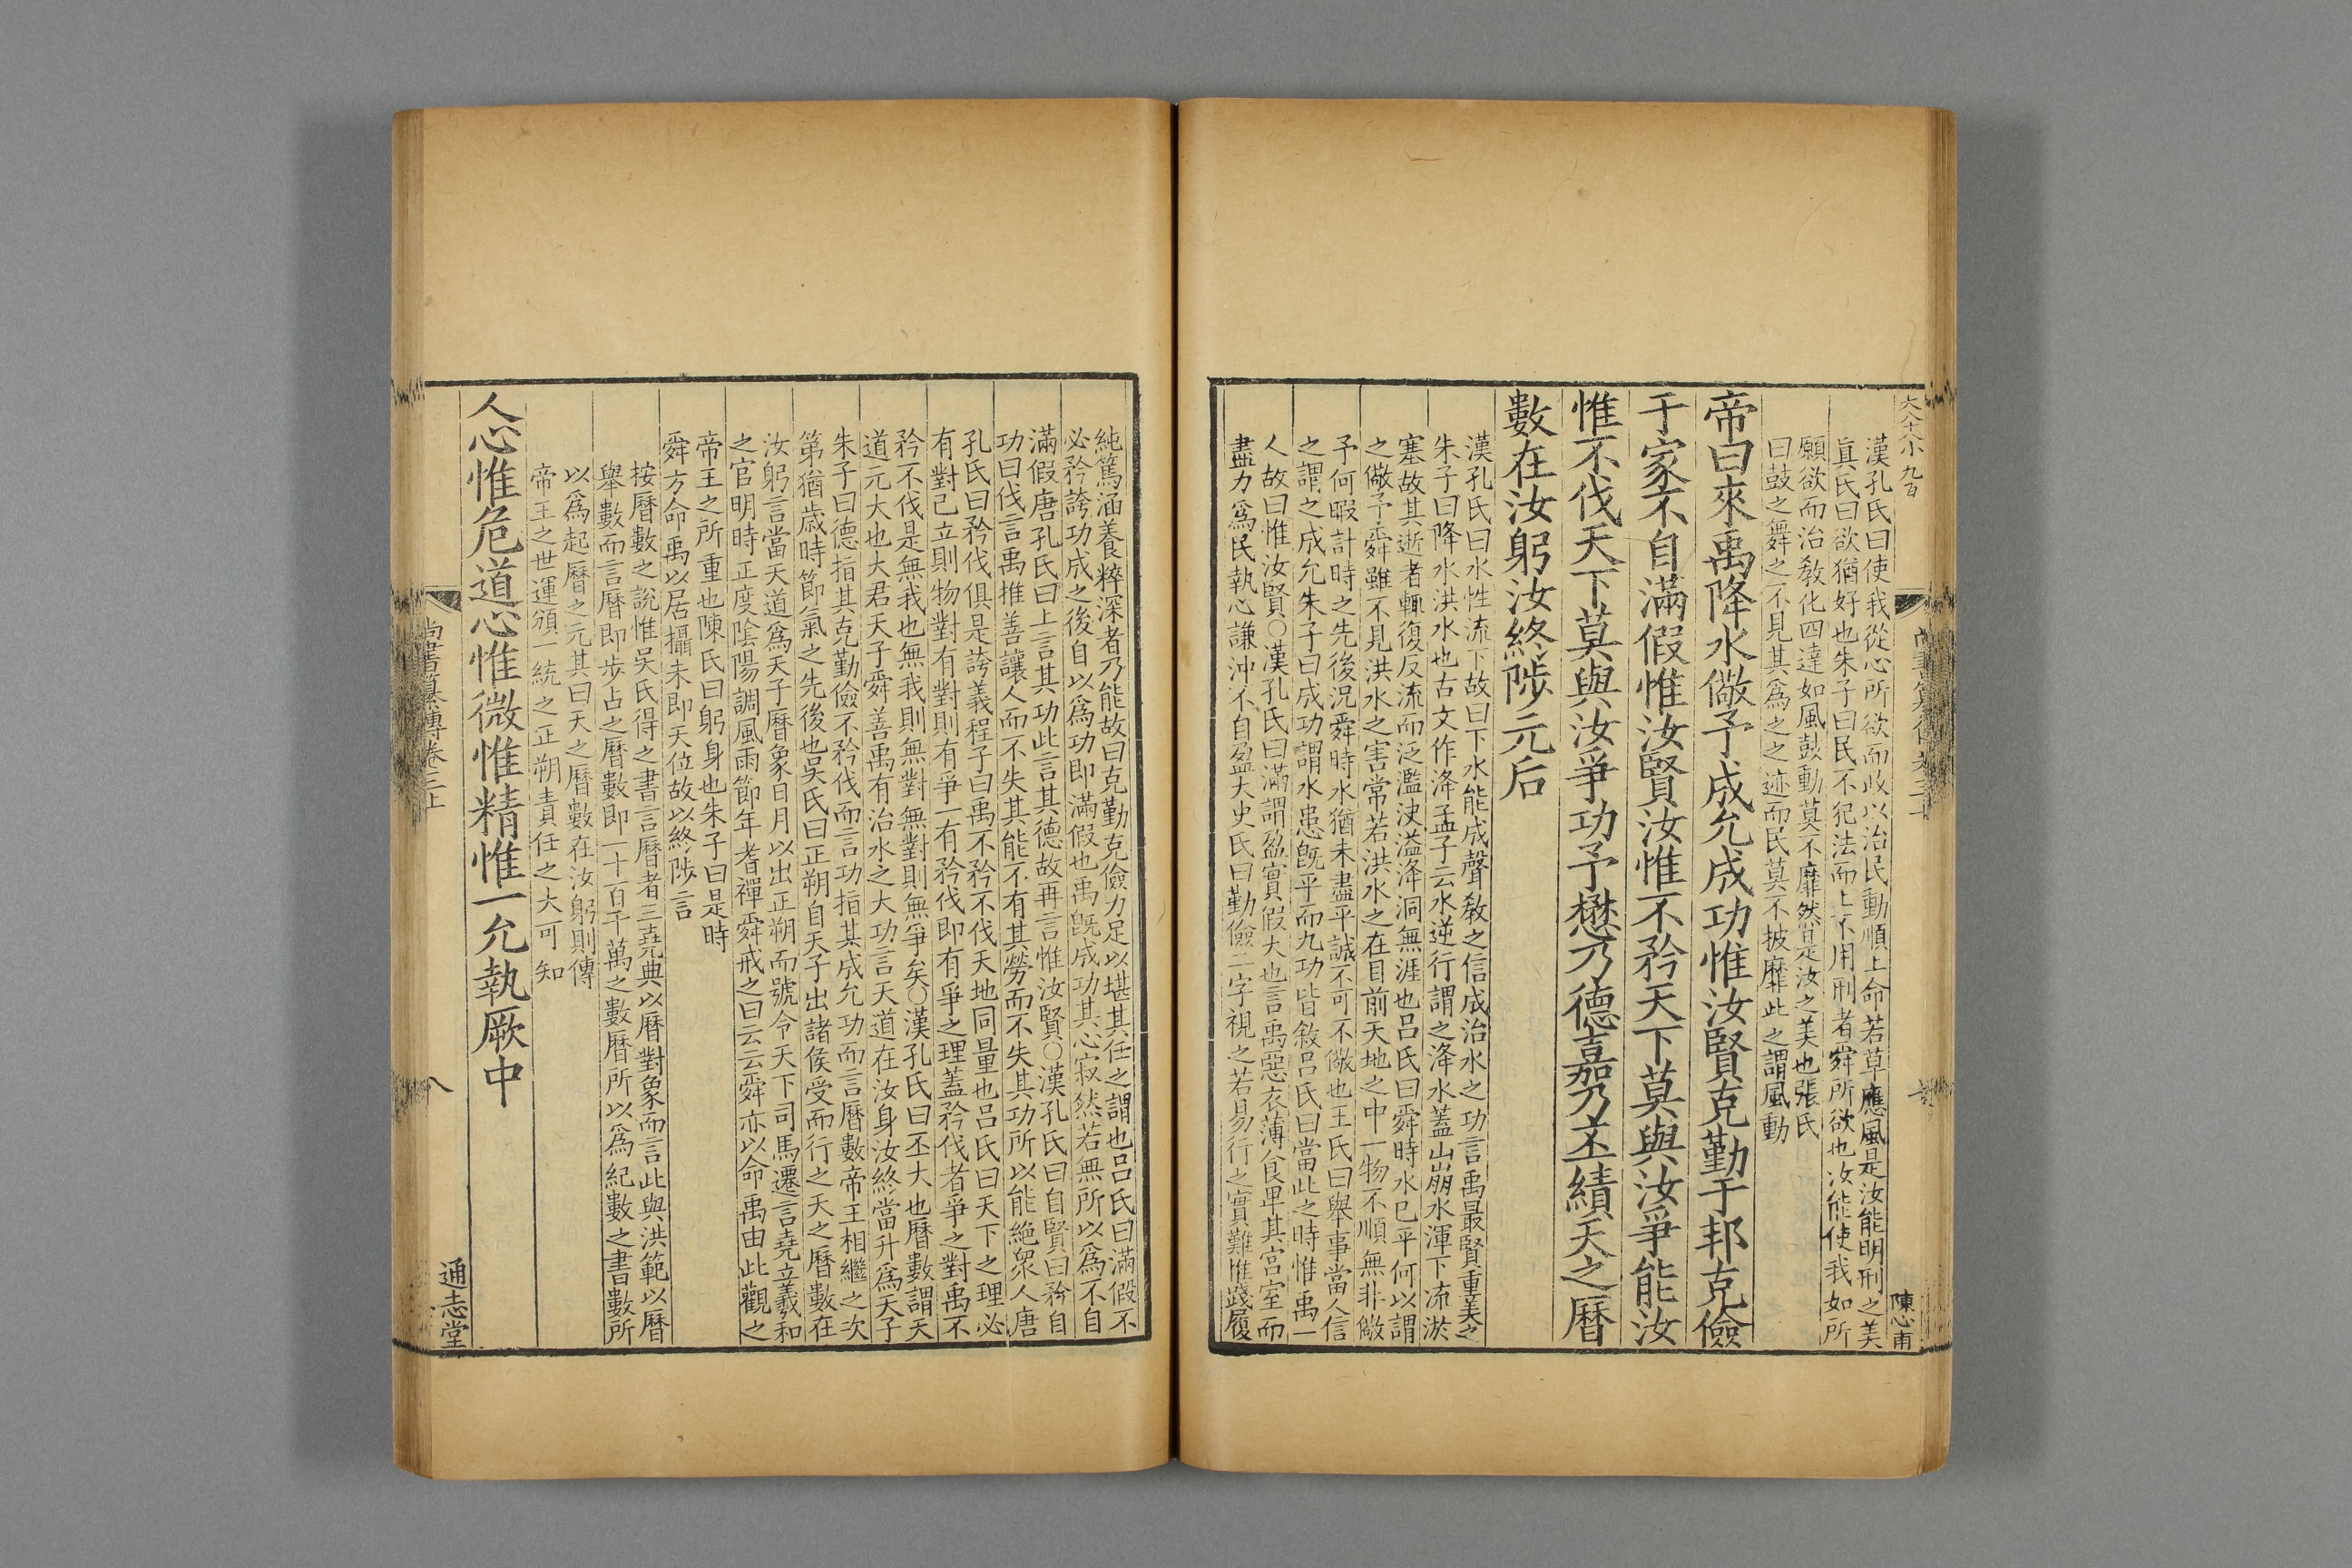 漢孔氏曰使我從心所欲而政以治民動順上命若草應風是汝能明刑之美
眞氏曰欲猶好也朱子曰民不犯法而上不用刑者舜所欲也汝能使我如所
願欲而治敎化四達如風鼓動莫不靡然是汝之美也張氏
曰鼓之舞之不見其爲之之迹而民莫不披靡此之謂風動
帝曰來禹降水儆予成允成功惟汝賢克勤于邦克儉
于家不自滿假惟汝賢汝惟不矜天下莫與汝爭能汝
惟不伐天下莫與汝爭功予懋乃德嘉乃丕績天之曆
數在汝躬汝終陟元后
漢孔氏曰水性流下故曰下水能成聲敎之信成治水之功言禹最賢重美之
朱子曰降水洪水也古文作洚孟子云水逆行謂之洚水蓋山崩水渾下流淤
塞故其逝者輒復反流而泛濫決溢洚洞無涯也呂氏曰舜時水已平何以謂
之儆予舜雖不見洪水之害常若洪水之在目前天地之中一物不順無非儆
予何暇計時之先後況舜時水猶未盡平誠不可不儆也王氏曰舉事當人信
之謂之成允朱子曰成功謂水患旣平而九功皆敘呂氏曰當此之時惟禹一
人故曰惟汝賢○漢孔氏曰滿謂盈實假大也言禹惡衣薄食卑其宮室而
盡力爲民執心謙沖不自盈大史氏曰勤儉二字視之若易行之實難惟踐履
純篤涵養粹深者乃能故曰克勤克儉力足以堪其任之謂也呂氏曰滿假不
必矜誇功成之後自以爲功卽滿假也禹旣成功其心寂然若無所以爲不自
滿假唐孔氏曰上言其功此言其德故再言惟汝賢○漢孔氏曰自賢曰矜自
功曰伐言禹推善讓人而不失其能不有其勞而不失其功所以能絶衆人唐
孔氏曰矜伐俱是誇義程子曰禹不矜不伐天地同量也呂氏曰天下之理必
有對己立則物對有對則有爭一有矜伐卽有爭之理蓋矜伐者爭之對禹不
矜不伐是無我也無我則無對無對則無爭矣○漢孔氏曰丕大也曆數謂天
道元大也大君天子舜善禹有治水之大功言天道在汝身汝終當升爲天子
朱子曰德指其克勤儉不矜伐而言功指其成允功而言曆數帝王相繼之次
第猶歲時節氣之先後也吳氏曰正朔自天子出諸侯受而行之天之曆數在
汝躬言當天道爲天子曆象日月以出正朔而號令天下司馬遷言堯立羲和
之官明時正度陰陽調風雨節年耆禪舜戒之曰云云舜亦以命禹由此觀之
帝王之所重也陳氏曰躬身也朱子曰是時
舜方命禹以居攝未卽天位故以終陟言
按曆數之說惟吳氏得之書言曆者三堯典以曆對象而言此與洪範以曆
舉數而言曆卽步占之曆數卽一十百千萬之數曆所以爲紀數之書數所
以爲起曆之元其曰天之曆數在汝躬則傳
帝王之世運頒一統之正朔責任之大可知
人心惟危道心惟微惟精惟一允執厥中
尚書纂傳卷三上
八
通志堂
陳心甫